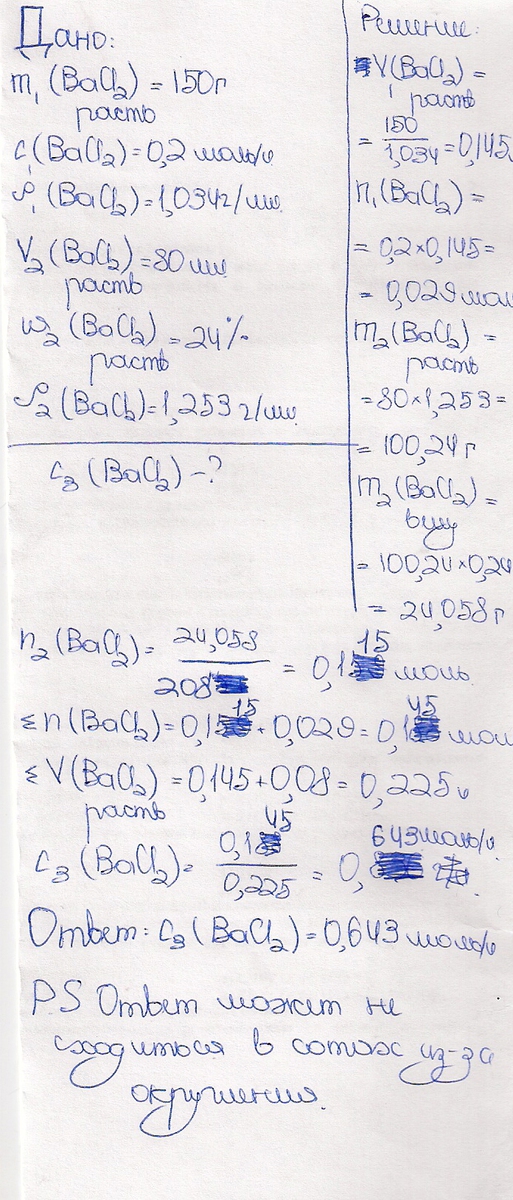 Дано:
m₁(BaCl₂) = 150г
раств
c₁(BaCl₂) = 0,2 моль/л
ρ₁(BaCl₂) = 1,034г/мл
V₂(BaCl₂) = 80 мл
раств
ω₂(BaCl₂) = 24%
раств
ρ₂(BaCl₂) = 1,253 г/мл
c₃(BaCl₂) - ?
Решение:
V₁(BaCl₂) =
раств
= 150/1,034 = 0,145
n₁(BaCl₂) =
= 0,2 × 0,145 =
= 0,029 мол
m₂(BaCl₂) =
раств
= 80 × 1,253 =
= 100,24 г
m₂(BaCl₂) =
вщу
= 100,24 × 0,24
= 24,058 г
n₂(BaCl₂) = 24,058/208 = 0,115 моль
Σn(BaCl₂) = 0,115 + 0,029 = 0,145 мол
ΣV(BaCl₂) = 0,145 + 0,08 = 0,225 л
раств
c₃(BaCl₂) = 0,145/0,225 = 0,643 моль/л
Ответ: c₃(BaCl₂) = 0,643 моль/л
PS Ответ может не
сходиться в сотых из-за
округления.